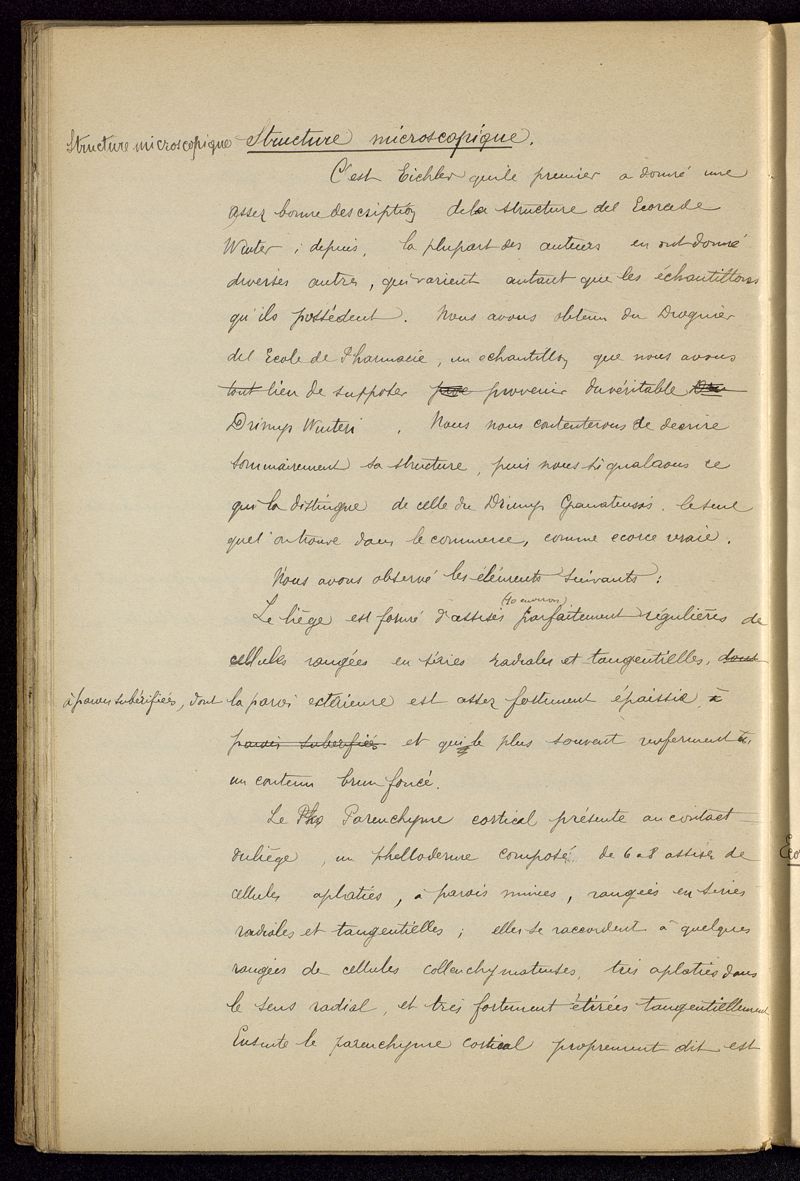 Structure microscopique Structure microscopique.
C'est Eichler qui le premier a donné une
assez bonne description de la structure de l'Ecorce de
Winter ; depuis, la plupart des auteurs en ont donné
diverses autres, qui varient autant que les échantillons
qu'ils possèdent. Nous avons obtenu du Droguier
de l'Ecole de Pharmacie, un echantillon que nous avons
tout lieu de supposer provenir du véritable
Drimys Winteri. Nous nous contenterons de décrire
sommairement sa structure, puis nous signalerons ce
qui la distingue de celle du Drimys Granatensis, le seul
que l'on trouve dans le commerce, comme ecorce vraie.
Nous avons observé les éléments suivants :
(10 environ)
Le liège est formé d'assises parfaitement régulières de
cellules rangées en séries radiales et tangentielles, dont
à parois subérifiées, dont la paroi extérieure est assez fortement épaissie, à
parois subérifiées et qui le plus souvent renferment
un contenu brun foncé.
Le Parenchyme cortical présente au contact
du liège, un phelloderme composé de 6 à 8 assises de
cellules aplaties, à parois minces, rangées en séries
radiales et tangentielles ; elles se raccordent à quelques
rangées de cellules collenchymateuses, très aplaties dans
le sens radial, et très fortement étirées tangentiellement
Ensuite le parenchyme cortical proprement dit est